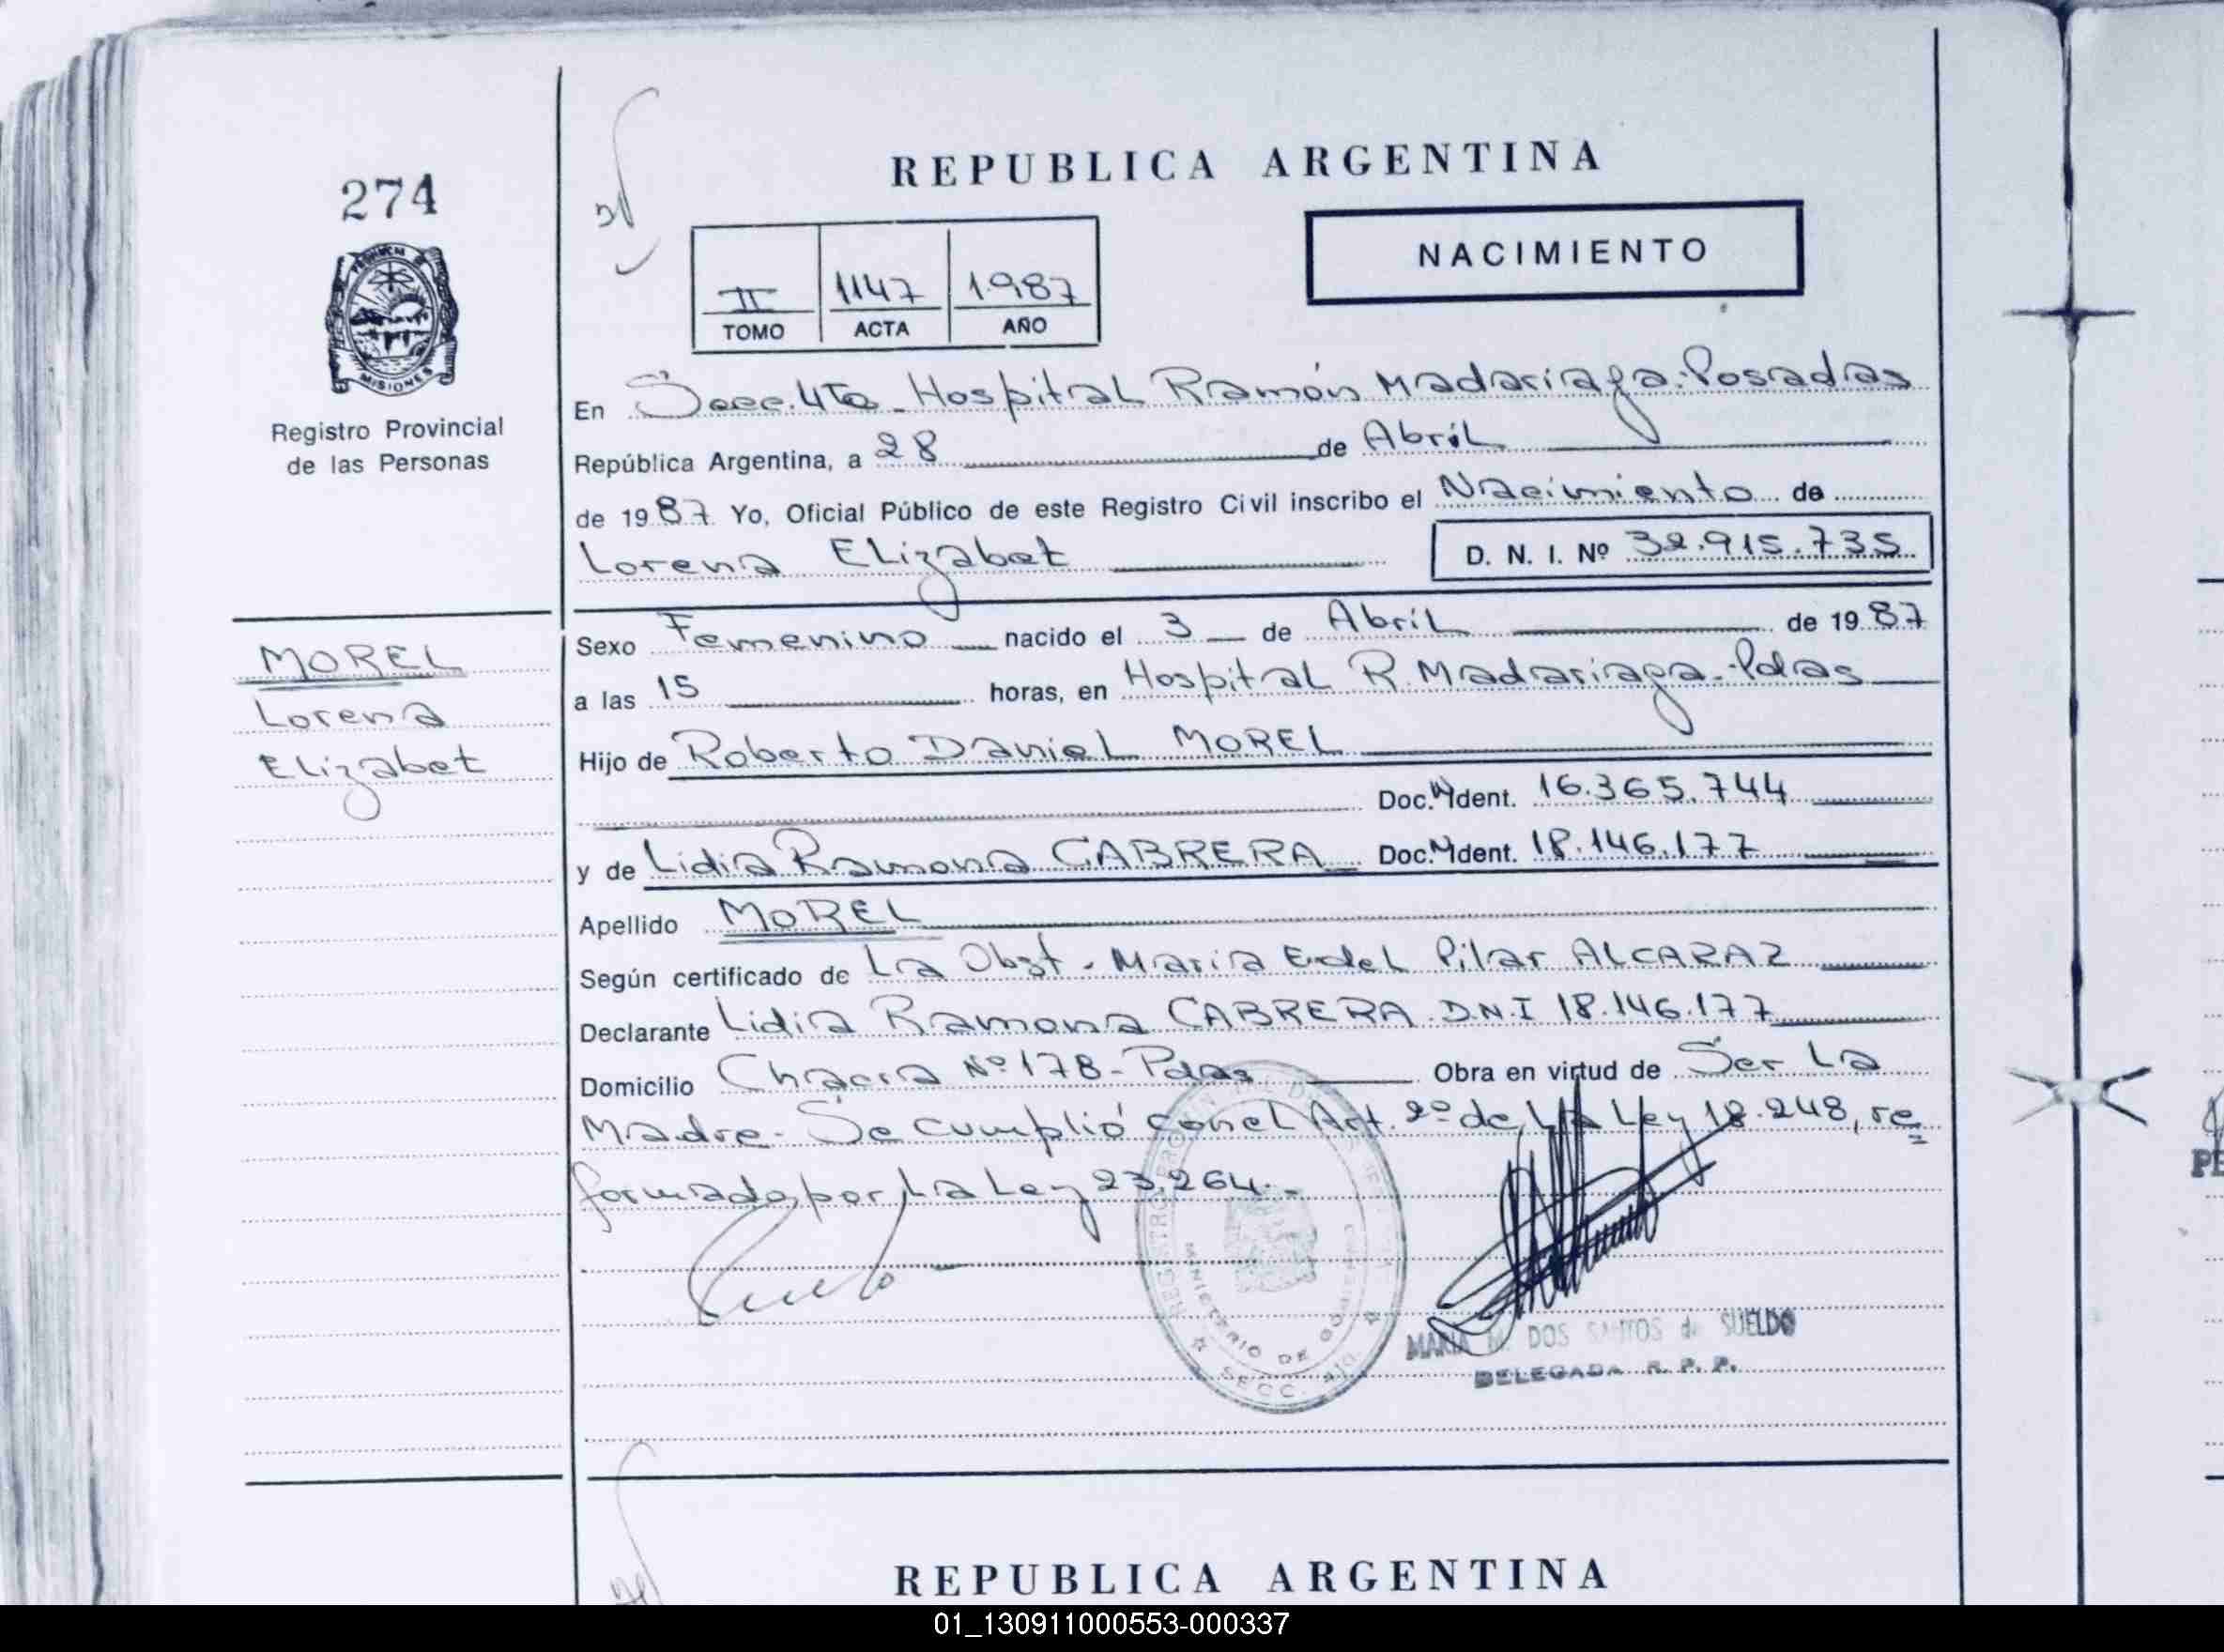 274
PROVINCIA DE
MISIONES
Registro Provincial
de las Personas
REPUBLICA ARGENTINA
NACIMIENTO
II 1147 1987
TOMO ACTA AÑO
En Secc. 4ta. Hospital Ramón Madariaga. Posadas
República Argentina, a 28 de Abril
de 1987 Yo, Oficial Público de este Registro Civil inscribo el Nacimiento de
Lorena Elizabet D. N. I. Nº 32.915.735
MOREL
Lorena
Elizabet
Sexo Femenino nacido el 3 de Abril de 1987
a las 15 horas, en Hospital R. Madariaga - Pdas
Hijo de Roberto Daniel MOREL
Doc. Ident. 16.365.744
y de Lidia Ramona CABRERA Doc. Ident. 18.146.177
Apellido MOREL
Según certificado de La Obst. Maria E. del Pilar ALCARAZ
Declarante Lidia Ramona CABRERA. D.N.I 18.146.177
Domicilio Chacra Nº 178 - Pdas Obra en virtud de Ser La
Madre. Se cumplió con el Art. 2º de La Ley 18.248, re
formado por La Ley 23.264.-
REGISTRO PROVIN
MINISTERIO DE GOBIERNO
SECC. 4ta
MARIA M. DOS SANTOS de SUELDO
DELEGADA R. P. P.
REPUBLICA ARGENTINA
PE
01_130911000553-000337